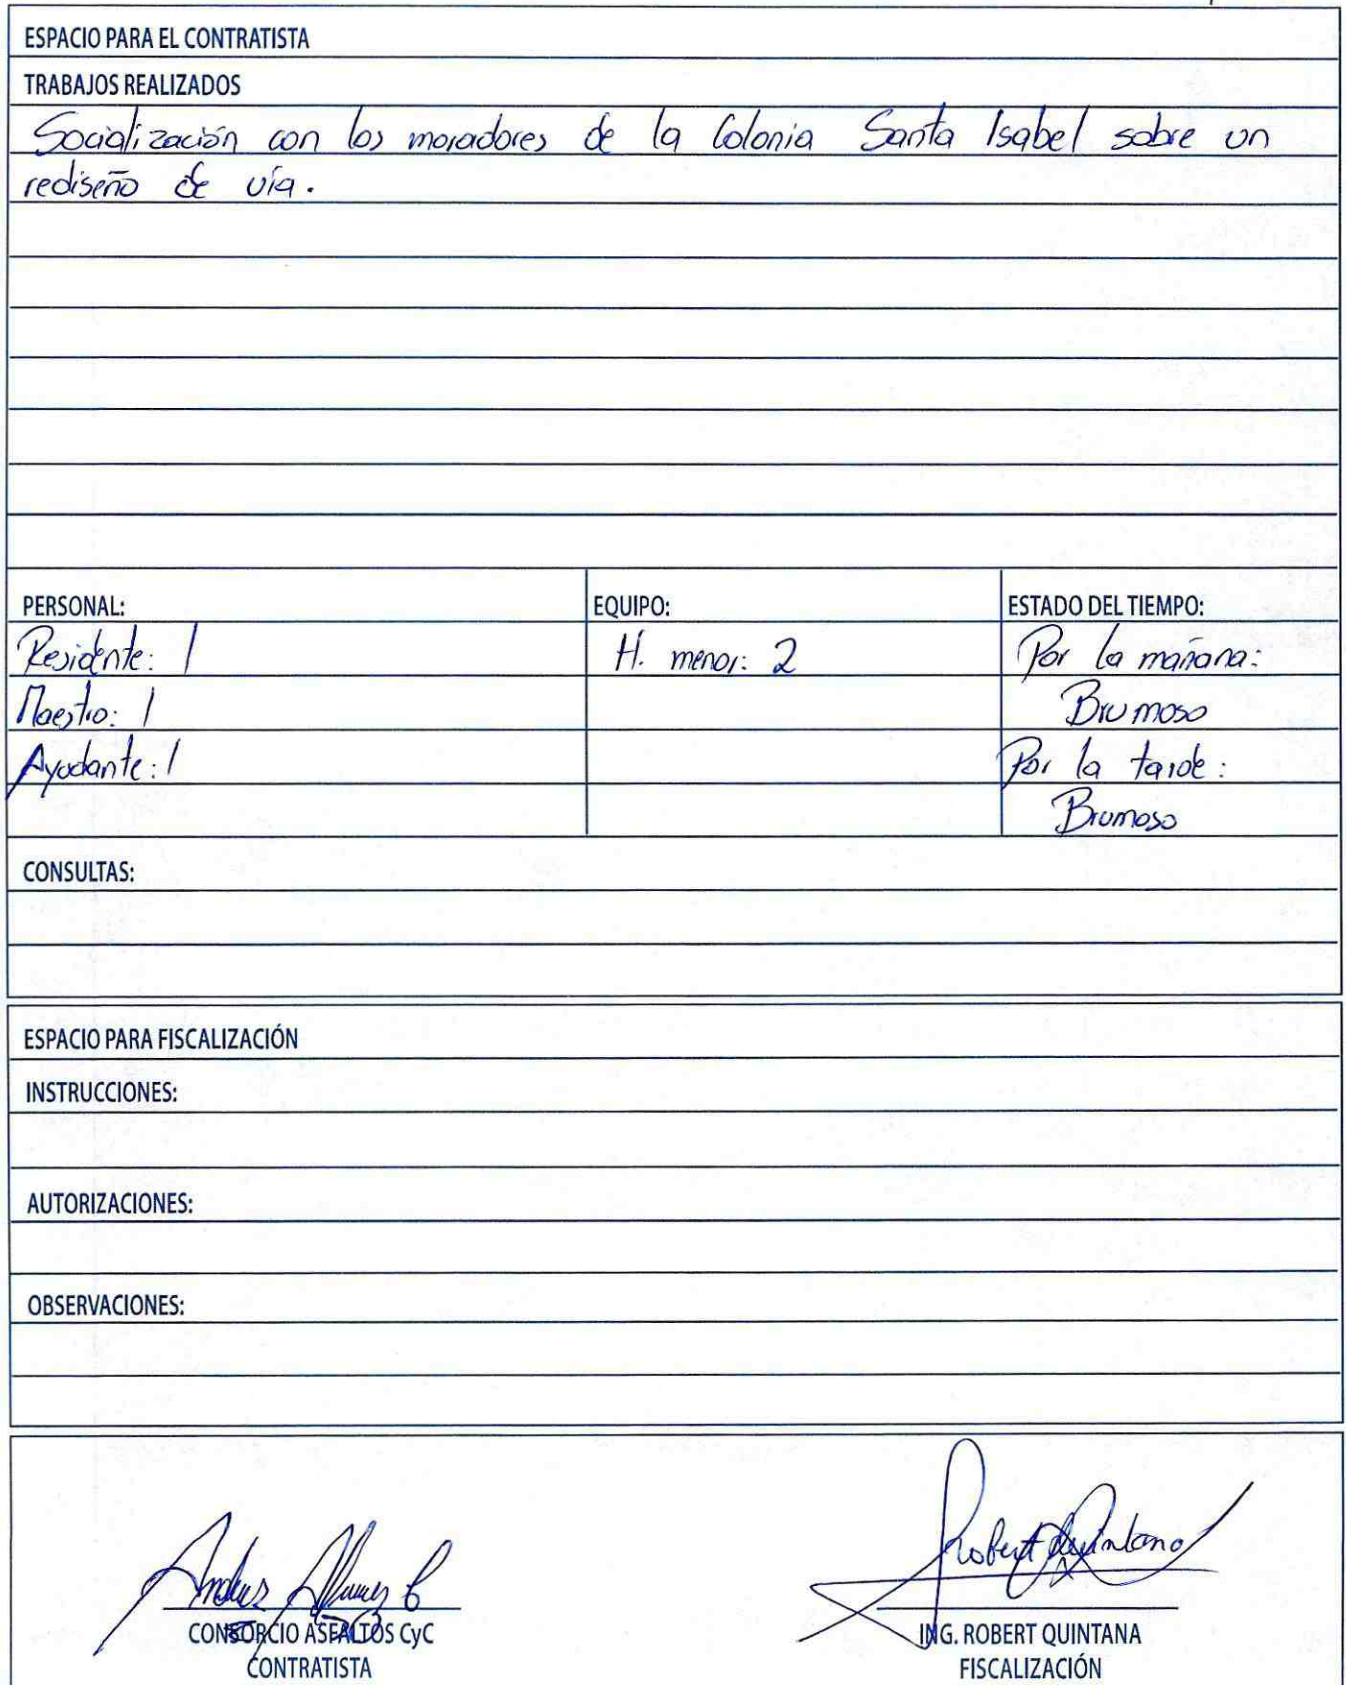 ESPACIO PARA EL CONTRATISTA
TRABAJOS REALIZADOS
Socialización con los moradores de la Colonia Santa Isabel sobre un
rediseño de vía.
PERSONAL: EQUIPO: ESTADO DEL TIEMPO:
Residente: 1 H. menor: 2 Por la mañana:
Maestro: 1 Brumoso
Ayudante: 1 Por la tarde:
Brumoso
CONSULTAS:
ESPACIO PARA FISCALIZACIÓN
INSTRUCCIONES:
AUTORIZACIONES:
OBSERVACIONES:
Robert Quintana
CONSORCIO ASFALTOS CyC ING. ROBERT QUINTANA
CONTRATISTA FISCALIZACIÓN